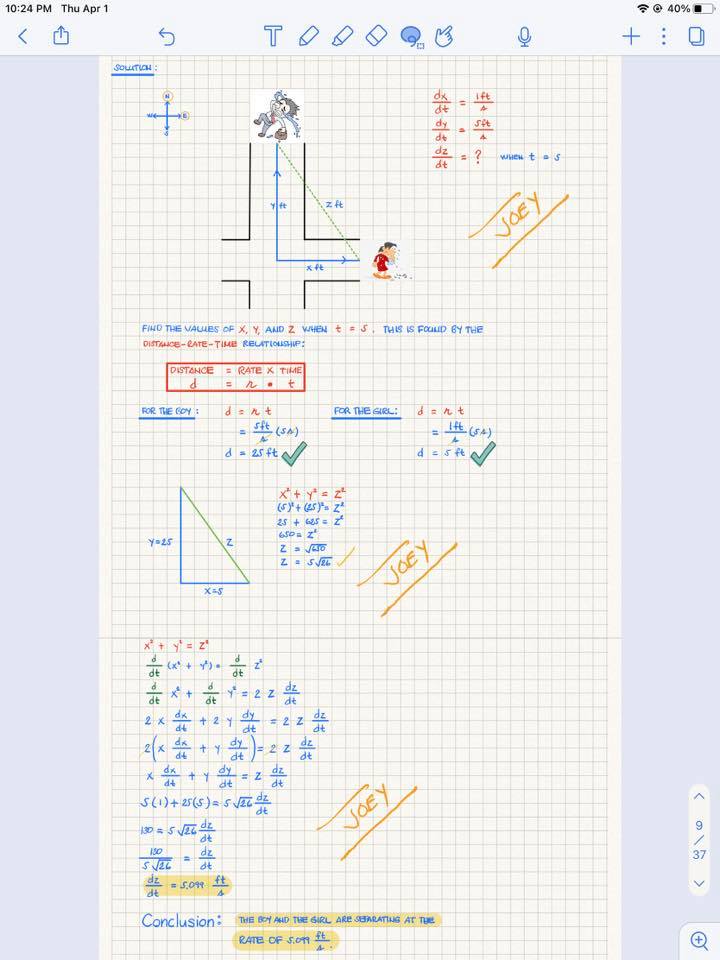 10:24 PM Thu Apr 1
40%
SOLUTION:
N
W E
S
dx/dt = 1ft/s
dy/dt = 5ft/s
dz/dt = ? WHEN t = 5
y ft
z ft
x ft
JOEY
FIND THE VALUES OF X, Y, AND Z WHEN t = 5. THIS IS FOUND BY THE
DISTANCE-RATE-TIME RELATIONSHIP:
DISTANCE = RATE X TIME
d = r • t
FOR THE BOY: d = r t
= 5ft/s (5s)
d = 25 ft
FOR THE GIRL: d = r t
= 1ft/s (5s)
d = 5 ft
Y=25
Z
X=5
X² + Y² = Z²
(5)² + (25)² = Z²
25 + 625 = Z²
650 = Z²
Z = √650
Z = 5√26
JOEY
X² + Y² = Z²
d/dt (X² + Y²) = d/dt Z²
d/dt X² + d/dt Y² = 2 Z dz/dt
2 X dx/dt + 2 Y dy/dt = 2 Z dz/dt
2(X dx/dt + Y dy/dt) = 2 Z dz/dt
X dx/dt + Y dy/dt = Z dz/dt
5(1) + 25(5) = 5√26 dz/dt
130 = 5√26 dz/dt
130/5√26 = dz/dt
dz/dt = 5.099 ft/s
JOEY
Conclusion: THE BOY AND THE GIRL ARE SEPARATING AT THE
RATE OF 5.099 ft/s.
9
/
37